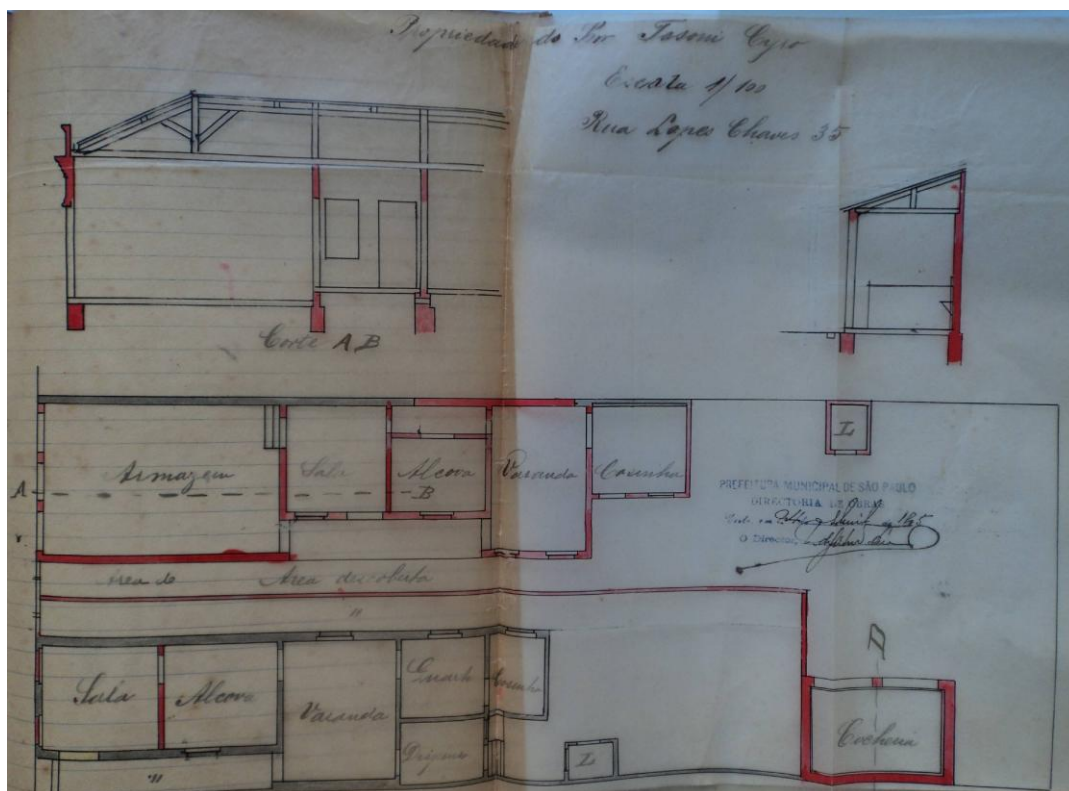 Propriedade do Snr Tasoni Cyro
Escala 1/100
Rua Lopes Chaves 35
Corte A,B
Armazem
Sala
Alcova
Varanda
Cosinha
L
A
B
PREFEITURA MUNICIPAL DE SÃO PAULO
DIRECTORIA DE OBRAS
O Director,
Area de
Area descoberta
"
Sala
Alcova
Varanda
Quarto
Cosinha
L
Cocheira
"